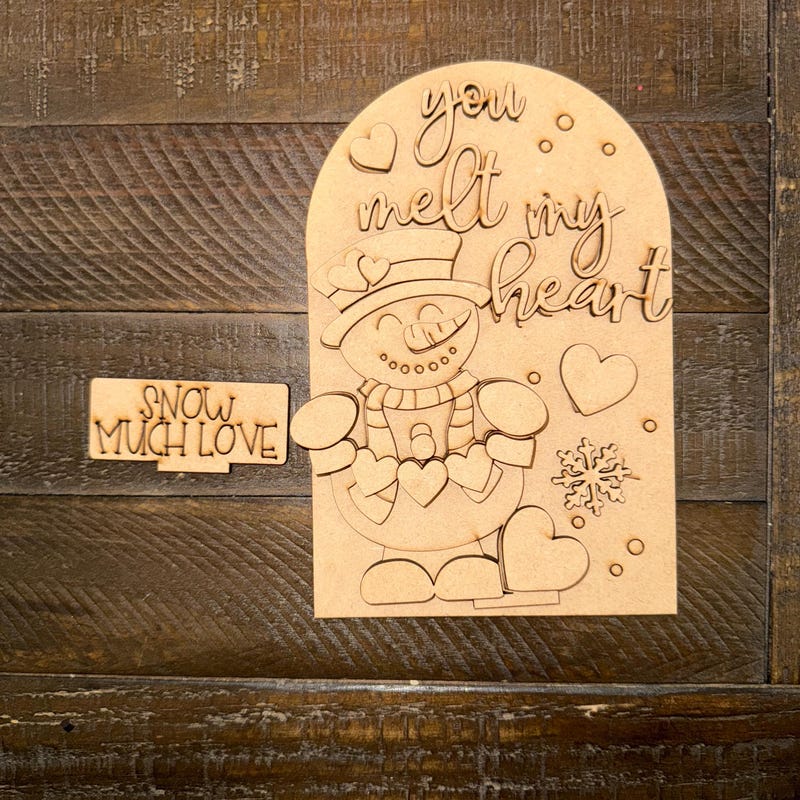 you
melt my
heart
SNOW
MUCH LOVE